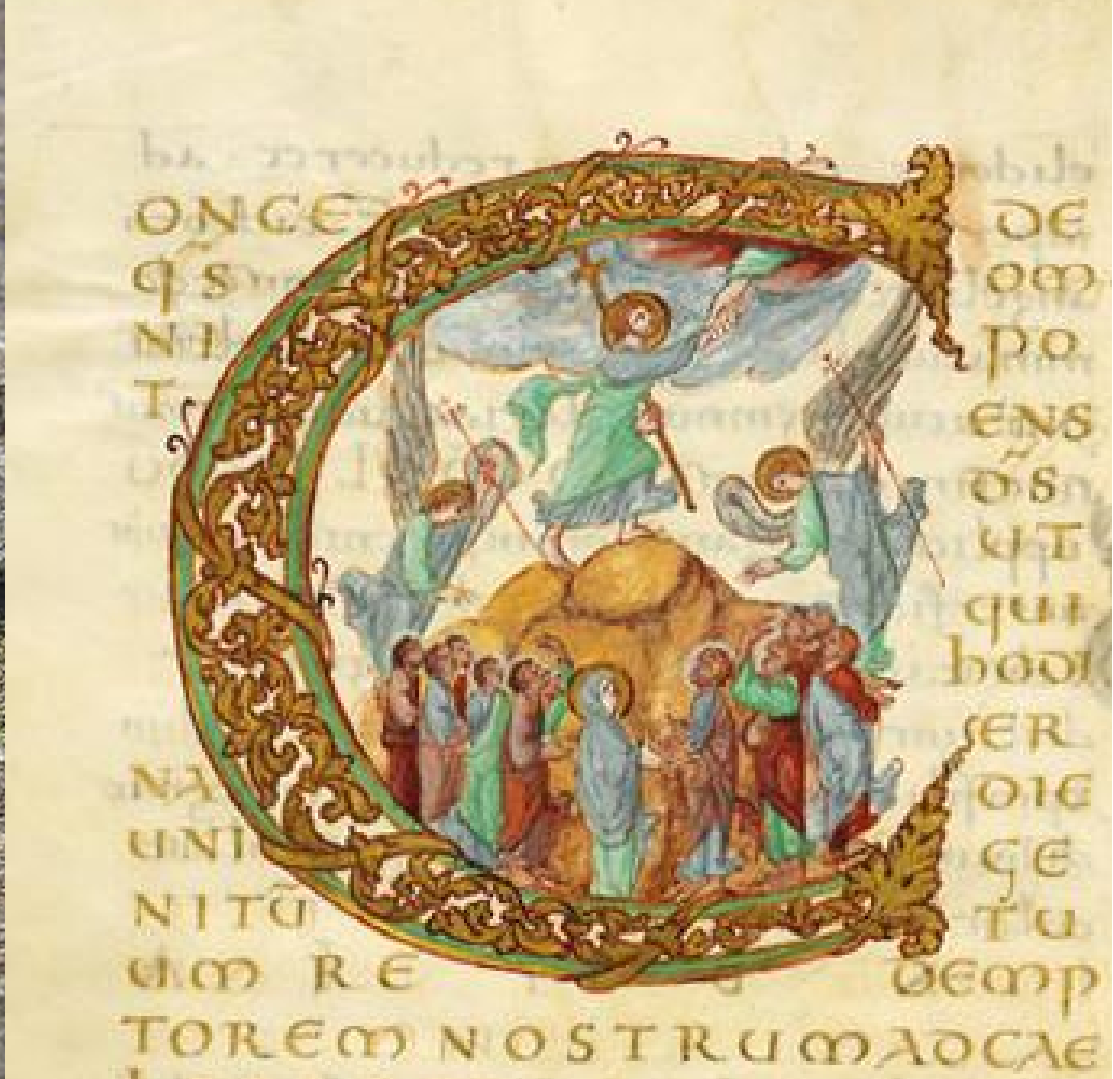 CONCE DE
q̃s om
NI po
T ENS
d̃s
UT
qui
hodi
ER
NA DIE
UNI GE
NITŪ TU
Um RE DEmp
TOREm NOSTRUmADCAE